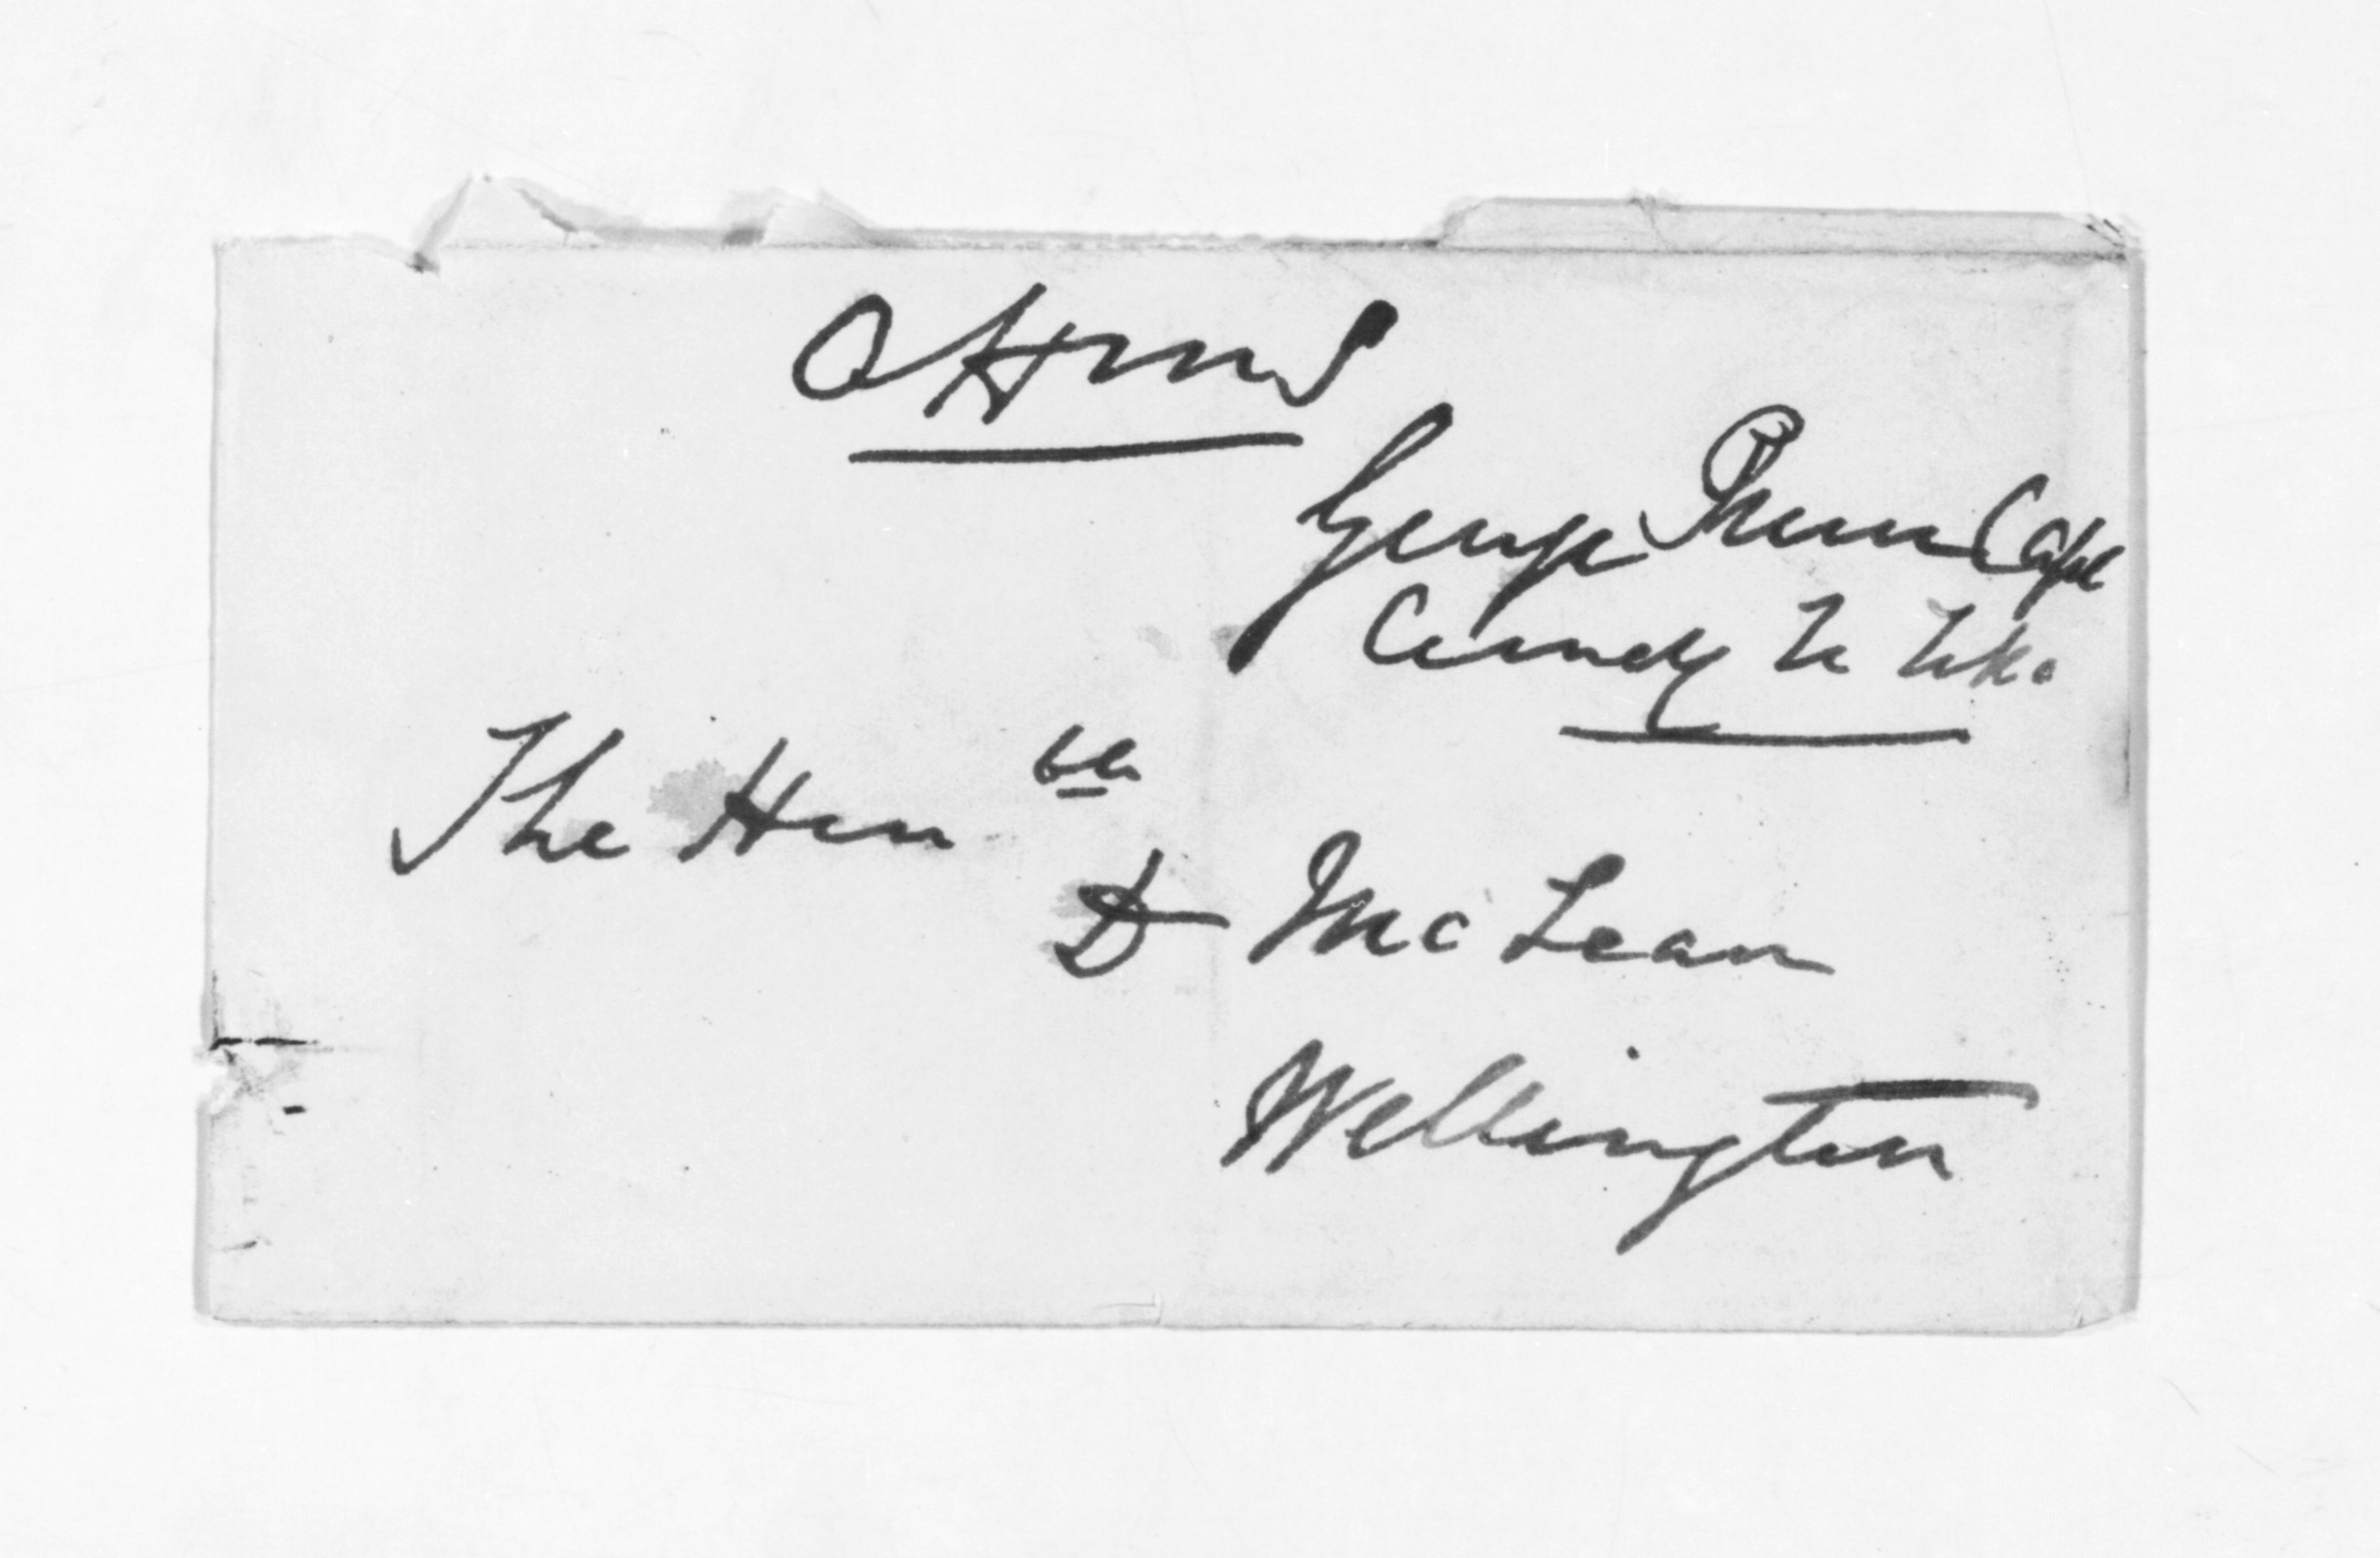 OHMS
George Preece Capt
Comdg Te Teko.
The Honble
D McLean
Wellington